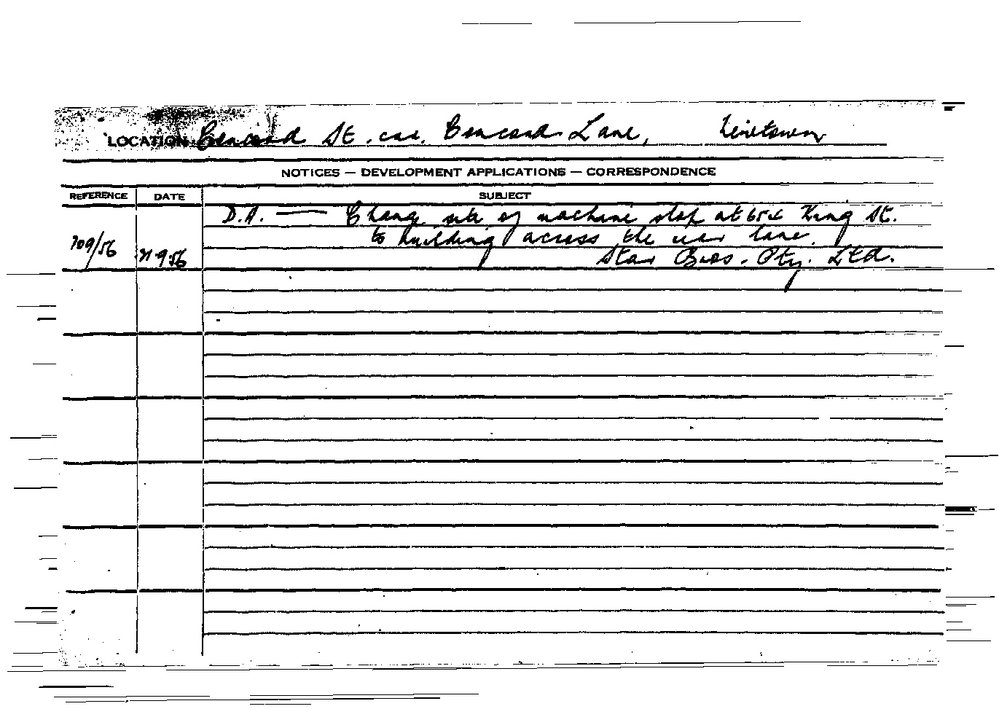 LOCATION Concord St. cnr. Concord Lane, Newtown
NOTICES — DEVELOPMENT APPLICATIONS — CORRESPONDENCE
REFERENCE DATE SUBJECT
D.A. — Change site of machine shop at King St.
709/56 9 56 to building across the rear lane.
Star Bros. Pty. Ltd.